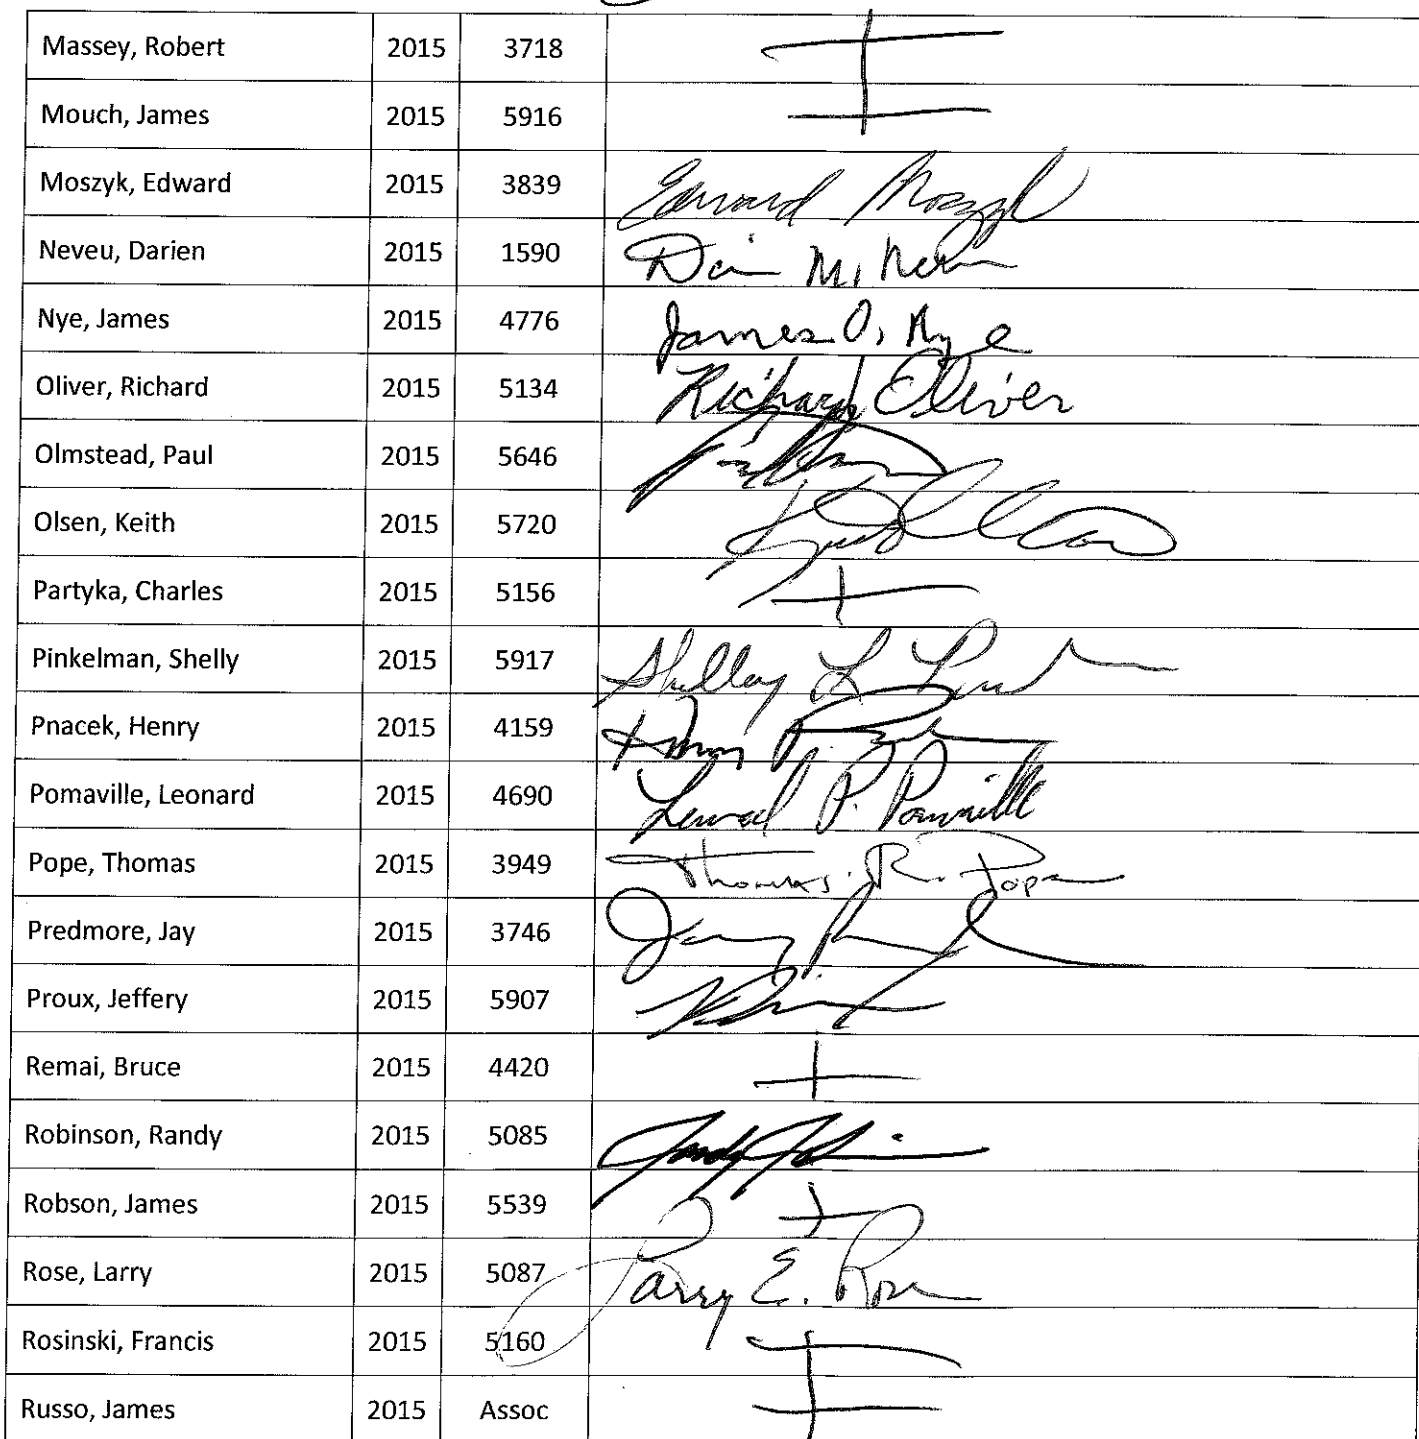 Massey, Robert 2015 3718
Mouch, James 2015 5916
Moszyk, Edward 2015 3839 Edward Moszyk
Neveu, Darien 2015 1590
Nye, James 2015 4776 James O. Nye
Oliver, Richard 2015 5134 Richard Oliver
Olmstead, Paul 2015 5646
Olsen, Keith 2015 5720
Partyka, Charles 2015 5156
Pinkelman, Shelly 2015 5917 Shelley L
Pnacek, Henry 2015 4159
Pomaville, Leonard 2015 4690 Leonard P. Pomaville
Pope, Thomas 2015 3949 Thomas R. Pope
Predmore, Jay 2015 3746 Jay
Proux, Jeffery 2015 5907
Remai, Bruce 2015 4420
Robinson, Randy 2015 5085
Robson, James 2015 5539
Rose, Larry 2015 5087 Larry E. Rose
Rosinski, Francis 2015 5160
Russo, James 2015 Assoc